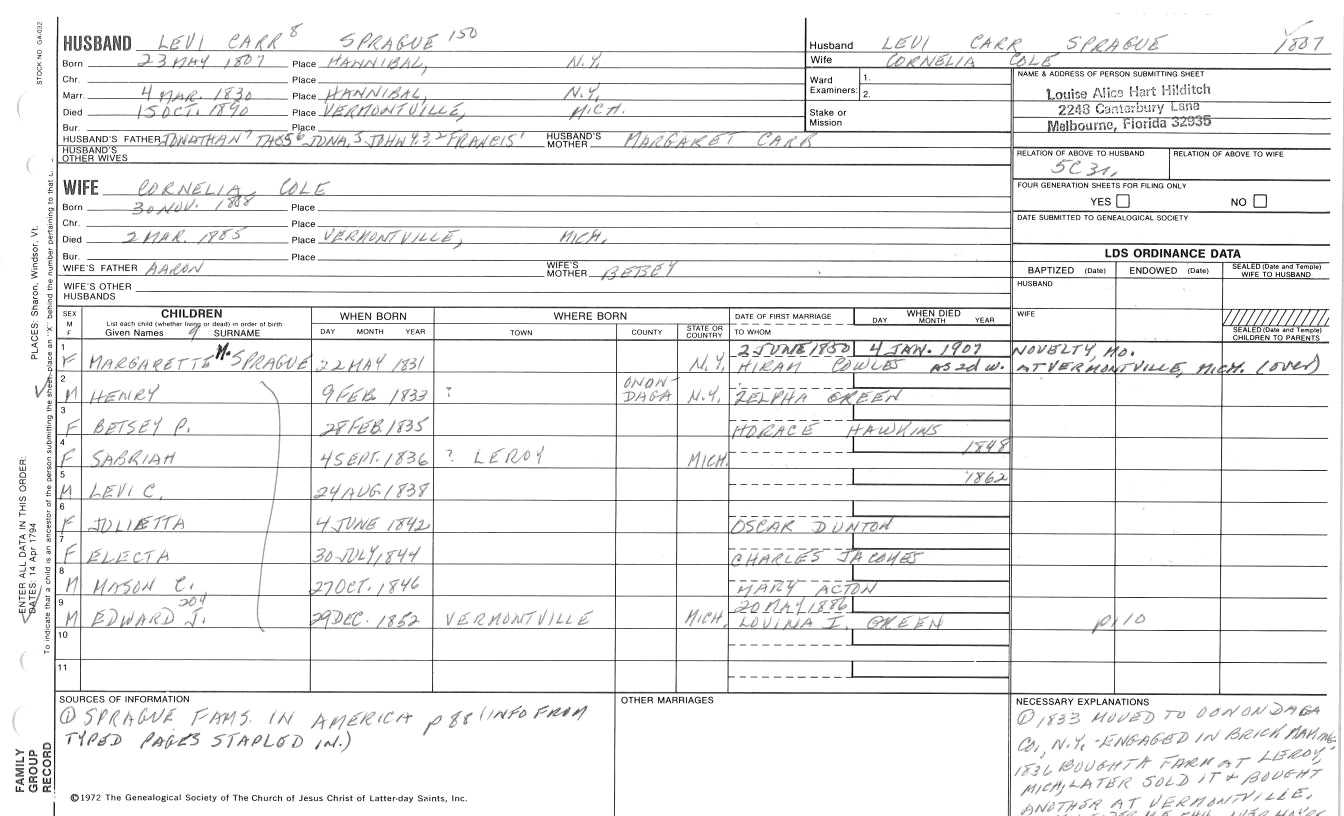 STOCK NO. GA-032
HUSBAND LEVI CARR 8 SPRAGUE 150
Born 23 MAY 1807 Place HANNIBAL, N.Y.
Chr. Place
Marr. 4 MAR. 1830 Place HANNIBAL, N.Y.
Died 15 OCT. 1890 Place VERMONTVILLE, MICH.
Bur. Place
HUSBAND'S FATHER JONATHAN 7 THOS 6 JONA. 5 JOHN 4,3,2 FRANCIS 1 HUSBAND'S MOTHER MARGARET CARR
HUSBAND'S OTHER WIVES
Husband LEVI CARR SPRAGUE 1807
Wife CORNELIA COLE
Ward Examiners: 1.
2.
Stake or Mission
NAME & ADDRESS OF PERSON SUBMITTING SHEET
Louise Alice Hart Hilditch
2248 Canterbury Lane
Melbourne, Florida 32935
RELATION OF ABOVE TO HUSBAND RELATION OF ABOVE TO WIFE
5C3r,
FOUR GENERATION SHEETS FOR FILING ONLY
YES NO
DATE SUBMITTED TO GENEALOGICAL SOCIETY
WIFE CORNELIA COLE
Born 30 NOV. 1808 Place
Chr. Place
Died 2 MAR. 1885 Place VERMONTVILLE, MICH.
Bur. Place
WIFE'S FATHER AARON WIFE'S MOTHER BETSEY
WIFE'S OTHER HUSBANDS
LDS ORDINANCE DATA
BAPTIZED (Date) ENDOWED (Date) SEALED (Date and Temple) WIFE TO HUSBAND
HUSBAND
WIFE
SEALED (Date and Temple) CHILDREN TO PARENTS
SEX M F CHILDREN WHEN BORN WHERE BORN DATE OF FIRST MARRIAGE WHEN DIED
List each child (whether living or dead) in order of birth
Given Names 9 SURNAME DAY MONTH YEAR TOWN COUNTY STATE OR COUNTRY TO WHOM DAY MONTH YEAR
1 2 JUNE 1850 4 JAN. 1907 NOVELTY, MO.
F MARGARETTE M. SPRAGUE 22 MAY 1831 N.Y. HIRAM COWLES AS 2d W. AT VERMONTVILLE, MICH. (over)
2 M HENRY 9 FEB. 1833 ? ONON-DAGA N.Y. ZELPHA GREEN
3 F BETSEY P. 28 FEB. 1835 HORACE HAWKINS
4 F SABRIAH 4 SEPT. 1836 ? LEROY MICH. 1848
5 M LEVI C. 24 AUG. 1838 1862
6 F JULIETTA 4 JUNE 1842 OSCAR DUNTON
7 F ELECTA 30 JULY, 1844 CHARLES JACOMES
8 M MASON C. 27 OCT. 1846 MARY ACTON
9 204 20 MAY 1886
M EDWARD J. 29 DEC. 1852 VERMONTVILLE MICH. LOVINA I. GREEN p110
10
11
SOURCES OF INFORMATION
① SPRAGUE FAMS. IN AMERICA p 88 (INFO FROM
TYPED PAGES STAPLED IN.)
OTHER MARRIAGES
NECESSARY EXPLANATIONS
① 1833 MOVED TO OONONDAGA
CO., N.Y. - ENGAGED IN BRICK MAKING
1836 BOUGHT A FARM AT LEROY,
MICH, LATER SOLD IT & BOUGHT
ANOTHER AT VERMONTVILLE.
©1972 The Genealogical Society of The Church of Jesus Christ of Latter-day Saints, Inc.
FAMILY
GROUP
RECORD
ENTER ALL DATA IN THIS ORDER
DATES: 14 Apr 1794
PLACES: Sharon, Windsor, Vt.
To indicate that a child is an ancestor of the person submitting the sheet, place an "X" behind the number pertaining to that c